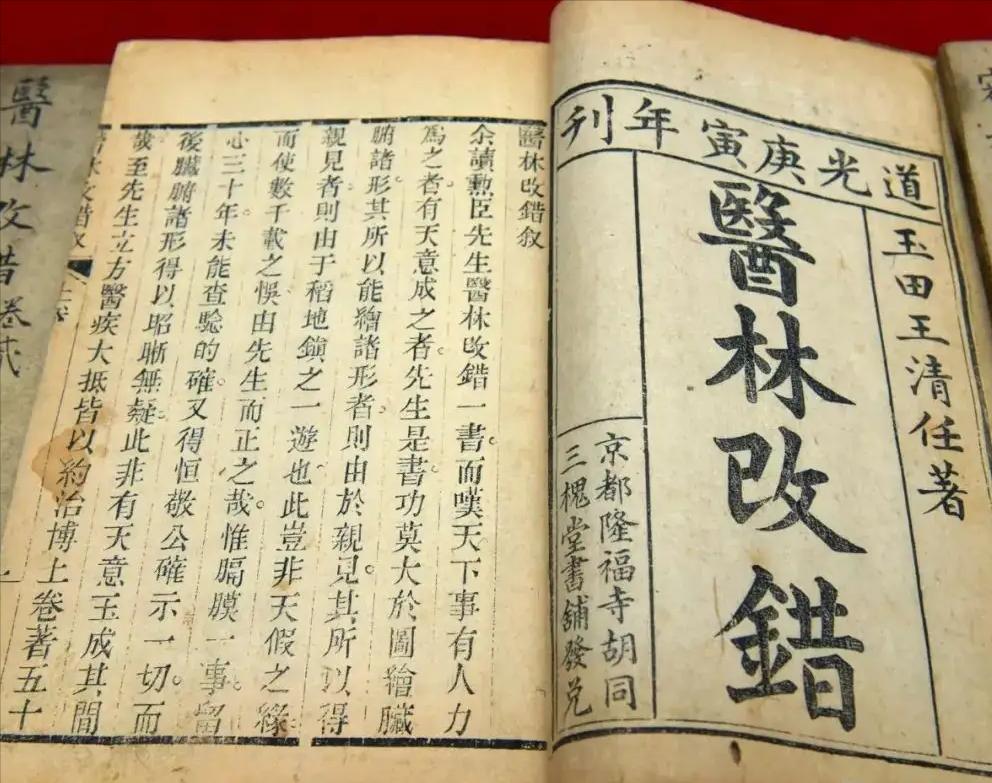 道光庚寅年刊
玉田王清任著
醫林改錯
京都隆福寺胡同
三槐堂書舖發兑
醫林改錯敘
余讀勲臣先生醫林改錯一書。而嘆天下事有人力
為之者。有天意成之者。先生是書功莫大於圖繪臟
腑諸形。其所以能繪諸形者。則由於親見。其所以得
親見者。則由于稻地鎮之一遊也。此豈非天假之緣
而使數千載之悞由先生而正之哉。惟膈膜一事。留
心三十年。未能查驗的確。又得恒敬公確示一切。而
後臟腑諸形得以昭晰無疑。此非有天意玉成其間
哉。至先生立方醫疾大抵皆以約治博上卷著五十
醫林改錯敘
一
醫林改錯卷貳